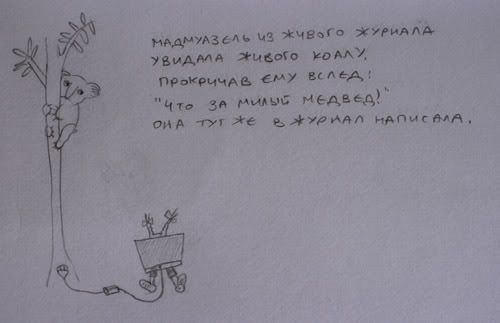 МАДМУАЗЕЛЬ ИЗ ЖИВОГО ЖУРНАЛА
УВИДАЛА ЖИВОГО КОАЛУ.
ПРОКРИЧАВ ЕМУ ВСЛЕД:
"ЧТО ЗА МИЛЫЙ МЕДВЕД!"
ОНА ТУТ ЖЕ В ЖУРНАЛ НАПИСАЛА.